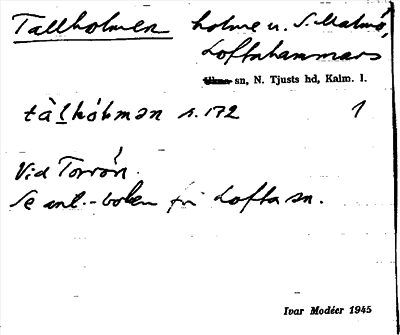 Tallholmen holme u. S. Malmö,
Loftahammars
Ukna sn, N. Tjusts hd, Kalm. l.
tàl̠hòlmən s. 172 1
Vid Torrön.
Se ant.-boken fr Lofta sn.
Ivar Modéer 1945